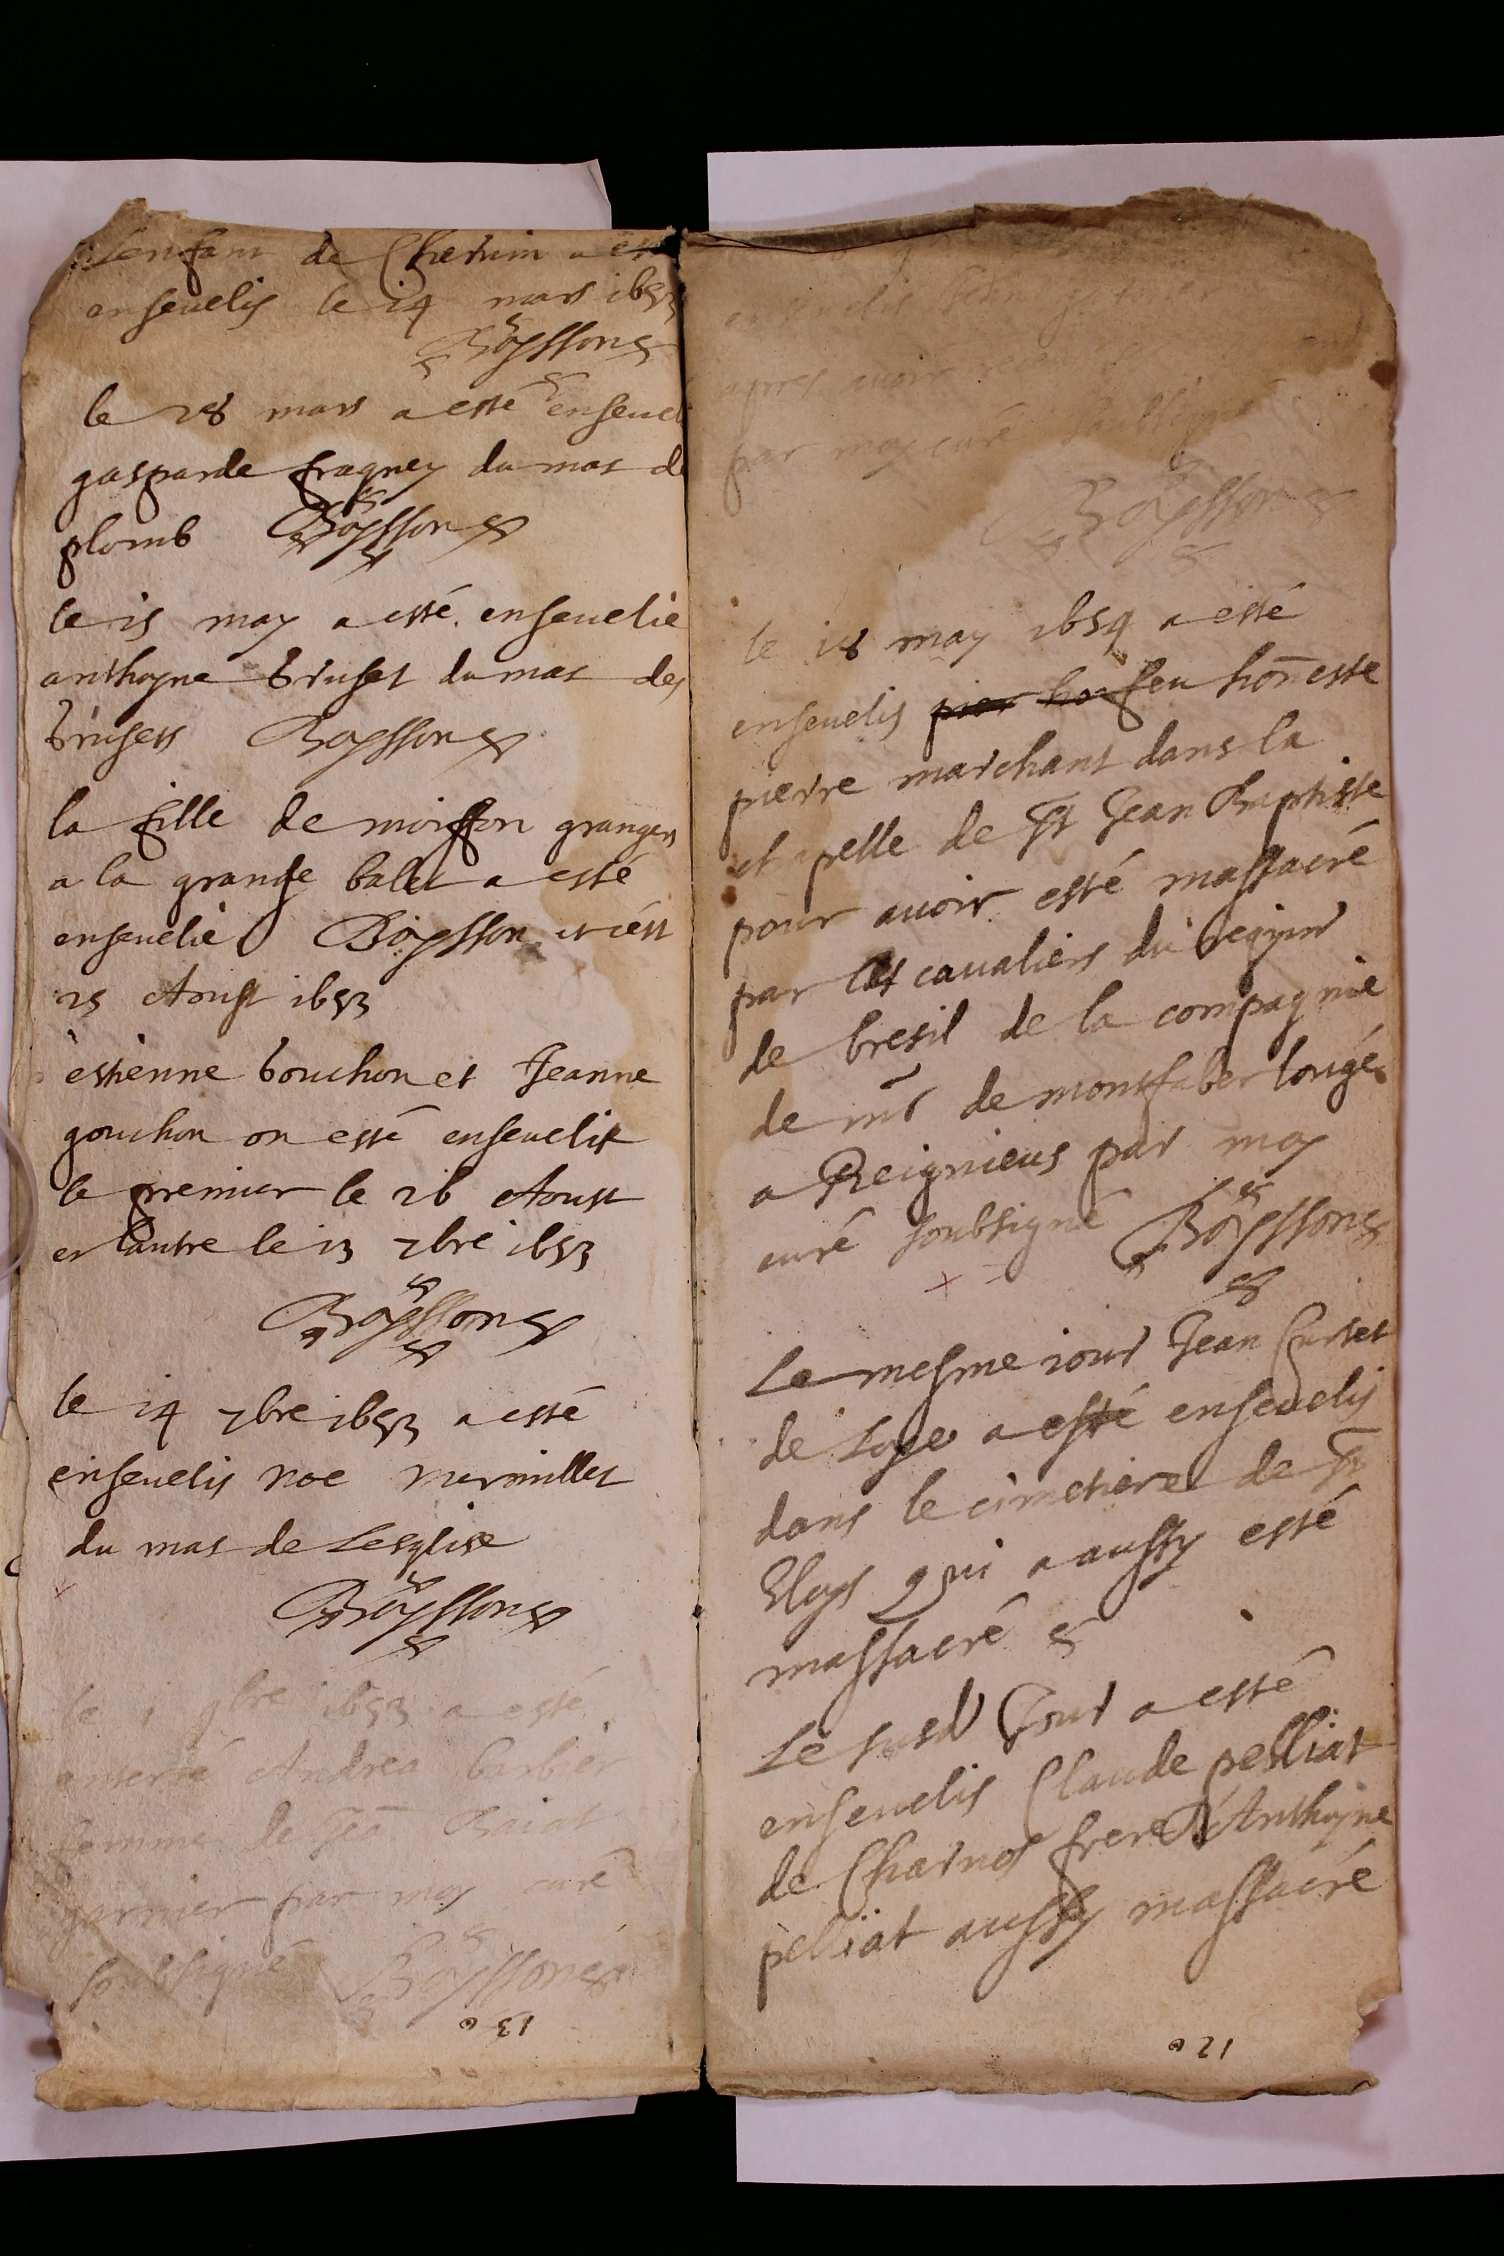 Lenfant de Chernin a esté
enseuelis le 14 mars 1653
Boyssons
le 28 mars a esté enseuel
gasparde fragney du mas de
plomb Boysson
le 15 may a esté enseuelie
anthoyne bruset du mas des
brusets Boysson
la fille de moiffon granger
a la grange balet a esté
enseuelie Boysson et cest
25 Aoust 1653
estienne bouchon et Jeanne
gouchon on esté enseuelis
le premier le 26 Aoust
et lautre le 13 7bre 1653
Boysson
le 14 7bre 1653 a esté
enseuelis noe mermillet
du mas de Lesglise
Boysson
le 9bre 1653 a esté
enterré Andrea barbier
femme de Jeā
garnier par moy curé
soubsigné Boysson
13
enseuelis
apres auoir
par moy curé
Boysson
le 18 may 1654 a esté
enseuelis pier hon feu hōneste
pierre marchant dans la
chapelle de St Jean Baptiste
pour auoir esté massacré
par les caualiers du regimt
de bresil de la compagnie
de mr de montfaber longé
a Reignieus par moy
curé soubsigné Boysson
Le mesme iour Jean Curtet
de Loye a esté enseuelis
dans le cimetiere de St
Eloys qui a aussy esté
massacré
Le susd Jour a esté
enseuelis Claude pelliat
de Charnos frere d'Anthoyne
pelliat aussy massacré
12